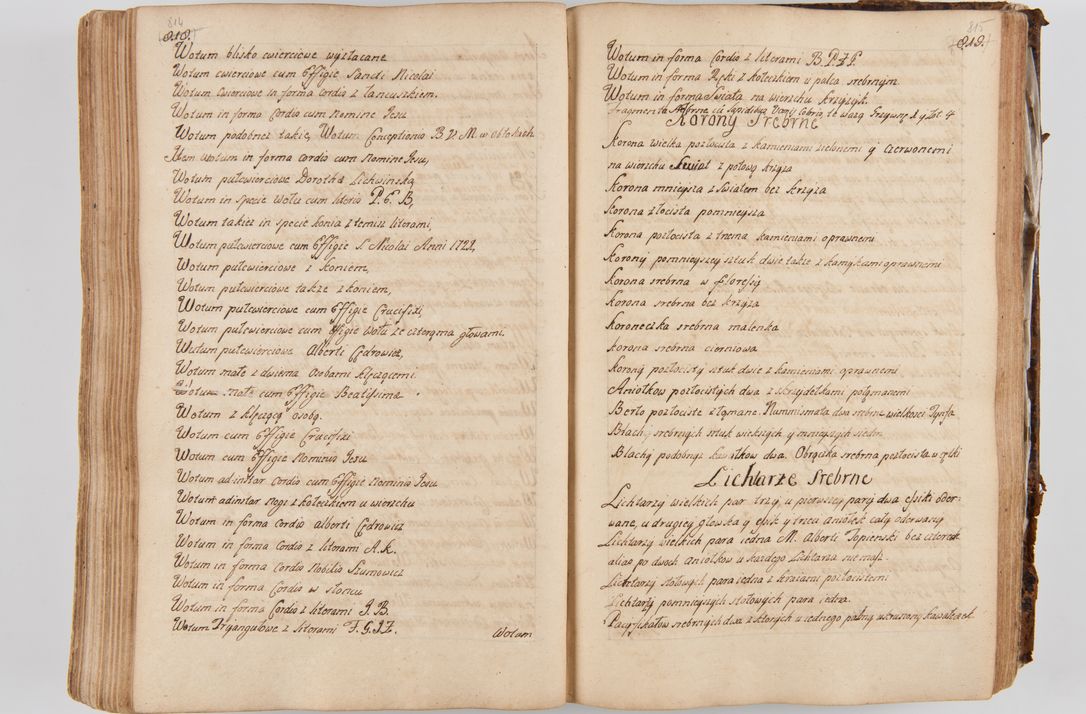 814
818.
Wotum blisko cwierciowe wyzłacane
Wotum cwierciowe cum Effigie Sancti Nicolai
Wotum Cwierciowe in forma Cordis z łancuszkiem.
Wotum in forma Cordis cum Nomine Jesu
Wotum podobnez takie, Wotum Conceptionis B. V. M. w obłokach
Item Wotum in forma Cordis cum Nomine Jesu,
Wotum pułcwierciowe Dorotha Lichwinska
Wotum in Specie Wołu cum literis P. C. B,
Wotum takiez in specie konia z temiz literami,
Wotum pułcwierciowe cum Effigie S. Nicolai Anni 1721,
Wotum pułcwierciowe z koniem,
Wotum pułcwierciowe takze z koniem,
Wotum pułcwierciowe cum Effigie Crucifixi
Wotum pułcwierciowe cum Effigie Wołu ze czterema głowami.
Wotum pułcwierciowe Alberti Cedrowicz,
Wotum małe z dwiema Osobami klęczącemi.
Wotum małe cum Effigie Beatissima
Wotum z klęczącą osobą.
Wotum cum Effigie Crucifixi
Wotum cum Effigie Nominis Jesu
Wotum ad instar Cordis cum Effigie Nominis Jesu
Wotum ad instar Nogi z kołeczkiem u wierzchu
Wotum in forma Cordis Alberti Cedrowicz
Wotum in forma Cordis z literami A. K.
Wotum in forma Cordis Nobilis Szumowicz
Wotum in forma Cordis w słońcu
Wotum in forma Cordis z literami J. B.
Wotum Tryjangułowe z literami F. G. J. Z.
Wotum
815
819.
Wotum in forma Cordis z literami B. P. Z. P.
Wotum in forma Ręki z kołeczkiem u palca srebrnym
Wotum in forma Swiata na wierzchu krzyzyk.
Fragmenta Srebrne cu Lapidibus Varij Coloris, te wazą Grzywnę 1 y Łot 4
Korony Srebrne
Korona wielka pozłocista z kamieniami zielonemi y czerwonemi
na wierzchu Swiat z połową krzyza
Korona mnieysza z Swiatem bez krzyza
Korona złocista pomnieysza
Korona pozłocista z trzema kamieniami oprawnemi
Korony pomnieyszey sztuk dwie takze z kamykami oprawnemi
Korona srebrna w floresy
Korona srebrna bez krzyza
Koroneczka srebrna malenka
Korona srebrna cierniowa
Korony pozłocisty sztuk dwie z kamieniami oprawnemi
Aniołkow pozłocistych dwa z skrzydełkami połąmanemi
Berło pozłociste złąmane. Nummismata dwa srebrne wielkosci Tynfa
Blachy srebrnych sztuk większych y mnieyszych siedm
Blachy podobney kawałkow dwa. Obrączka srebrna pozłocista w cętki
Lichtarze Srebrne
Lichtarzy wielkich par trzy, u pierwszey pary dwa cęiki oder-
wane, u drugiey głowka y cęik y trzeci Aniołek cały oderwany
Lichtarzy wielkich para iedna M. Alberti Topienski bez czterech
alias po dwoch Aniołkow u kazdego Lichtarza nie masz
Lichtarzy stołowych para iedna z kraiami pozłocistemi
Lichtarzy pomnieyszych stołowych para iedna.
Pacyfikałow srebrnych dwa z ktorych u iednego pasiny ukruszony kawałeczek